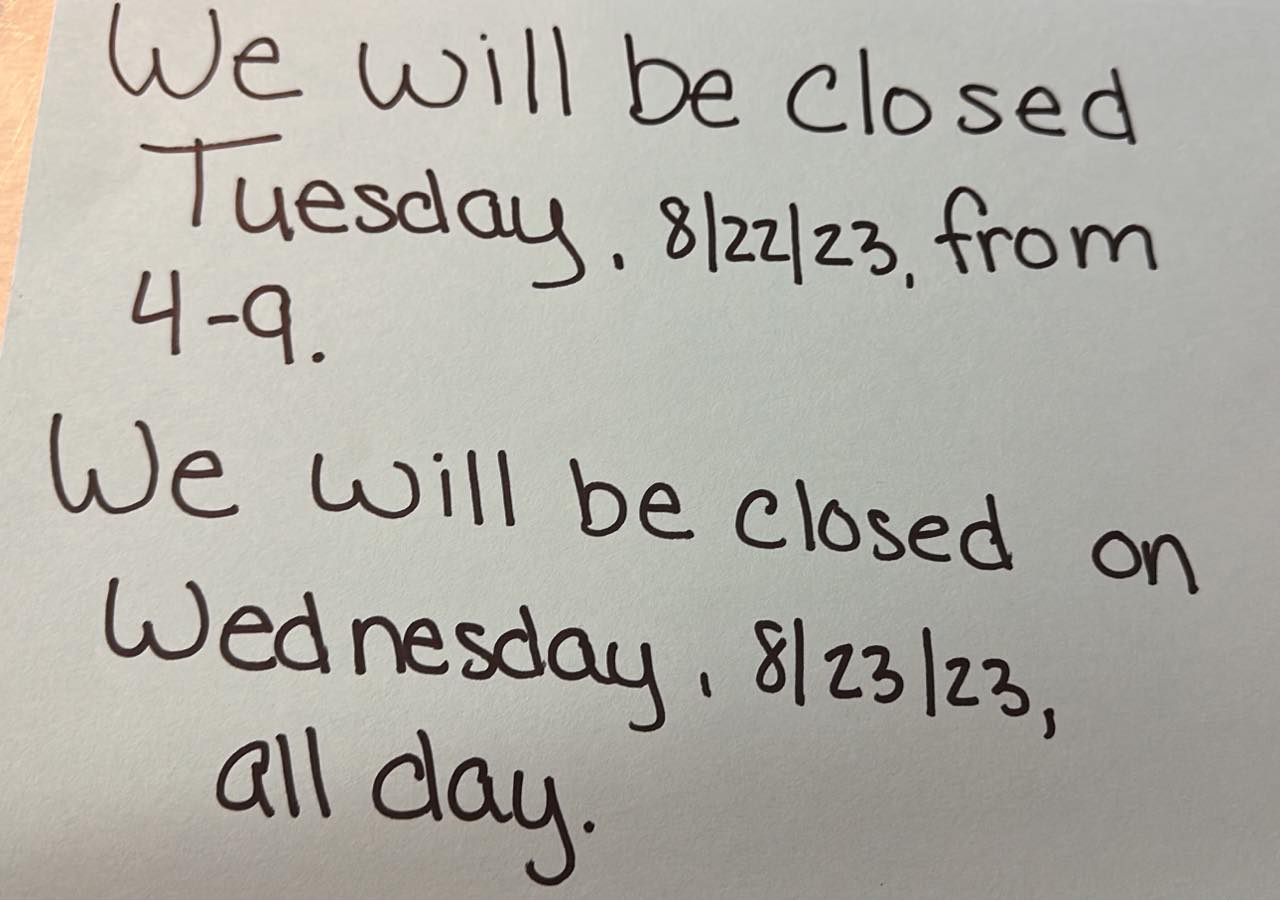 We will be closed
Tuesday, 8/22/23, from
4-9.
We will be closed on
Wednesday, 8/23/23,
all day.